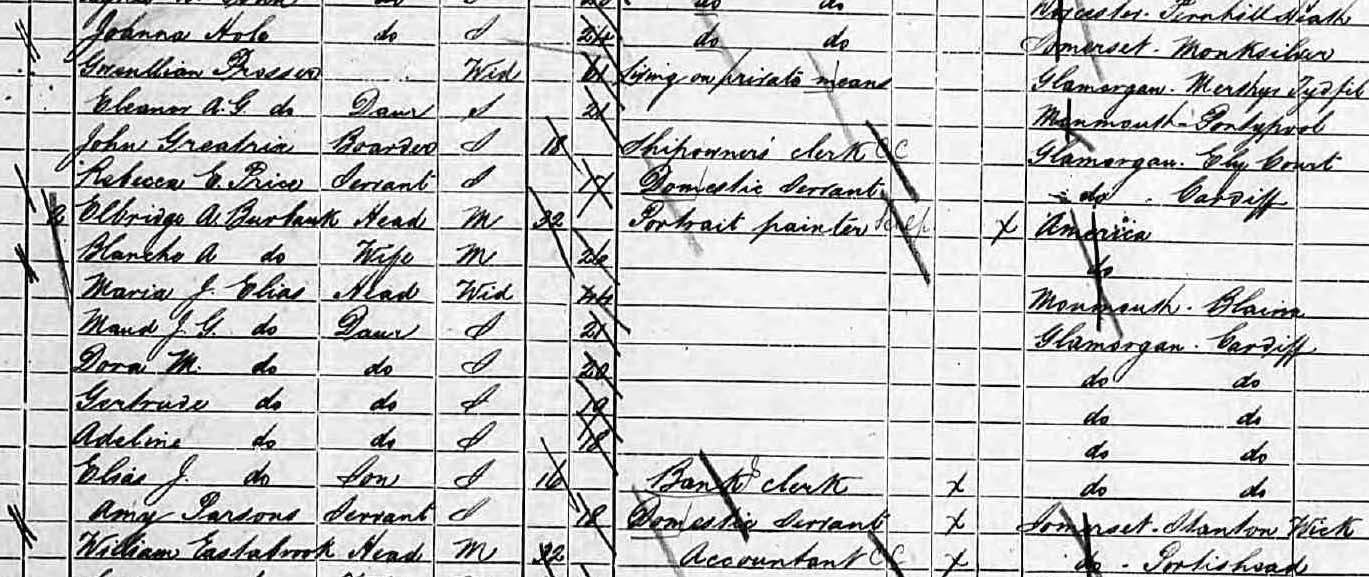 do do Worcester. Fernhill Heath
Johanna Hole do S 24 do do Somerset. Monksilver
Gwenllian Prosser Wid 61 Living on private means Glamorgan. Merthyr Tydfil
Eleanor A. G. do Daur S 21 Monmouth - Pontypool
John Greatrix Boarder S 18 Shipowner's clerk CC Glamorgan. Ely Court
Rebecca E. Price Servant S 17 Domestic Servant do . Cardiff
2 Elbridge A. Burbank Head M 32 Portrait painter X America
Blanche A do Wife M 26 do
Maria J. Elias Head Wid 44 Monmouth. Blaina
Maud J. G. do Daur S 21 Glamorgan. Cardiff
Dora M. do do S 20 do do
Gertrude do do S 19 do do
Adeline do do S 18 do do
Elias J. do Son S 16 Bank clerk X do do
Amy Parsons Servant S 18 Domestic Servant X Somerset. Stanton Wick
William Eastabrook Head M 32 Accountant CC X do - Portishead